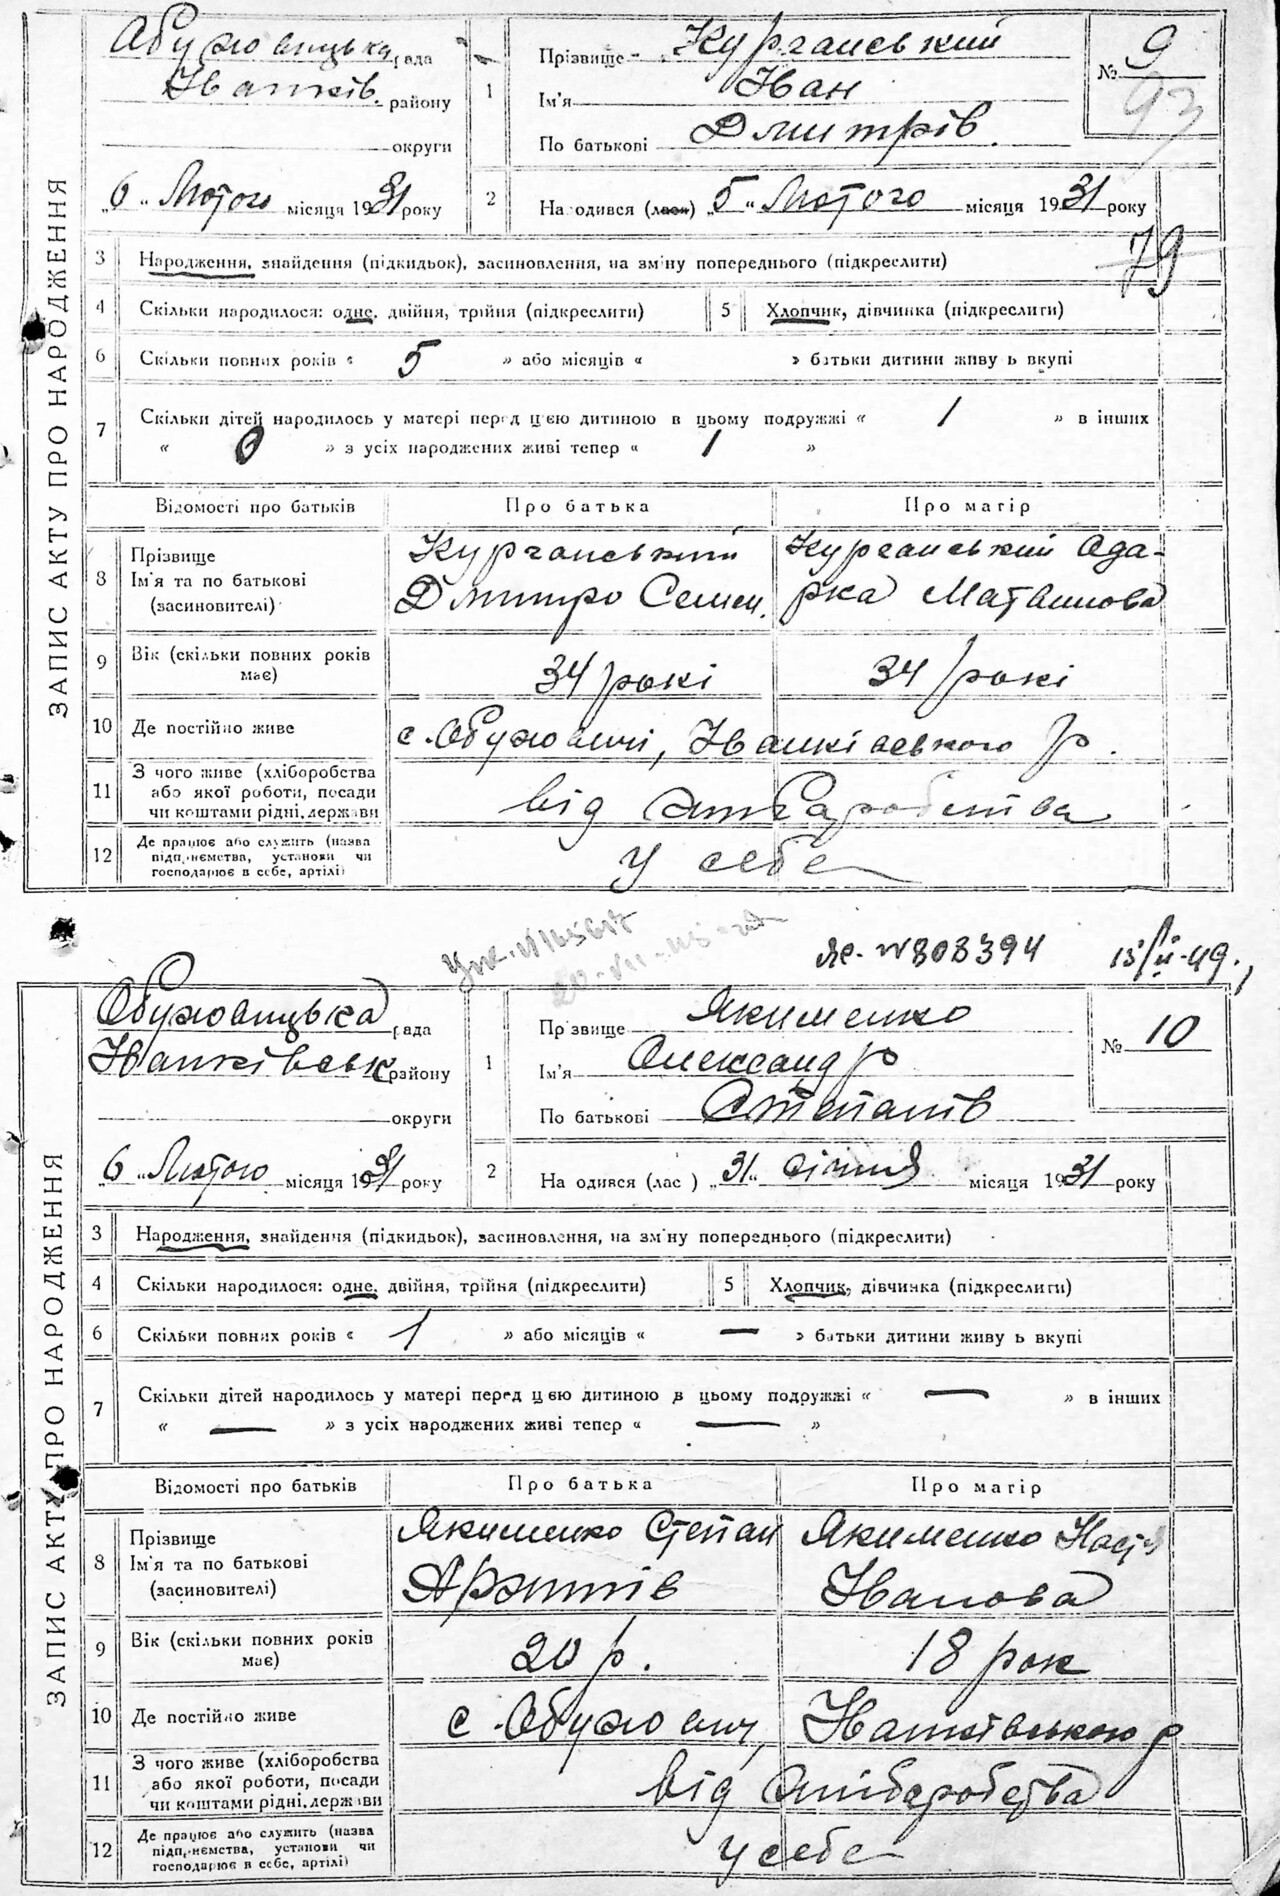 ЗАПИС АКТУ ПРО НАРОДЖЕННЯ
Обуховицька рада
Іванків. району
округи
„6“ Лютого місяця 1931 року
1
Прізвище Курганський
Ім'я Іван
По батькові Дмитрів.
№ 9
93
2
На одився (лась) „5“ Лютого місяця 1931 року
79
3 Народження, знайдення (підкидьок), засиновлення, на зм ну попереднього (підкреслити)
4 Скільки народилося: одне, двійня, трійня (підкреслити) 5 Хлопчик, дівчинка (підкреслити)
6 Скільки повних років « 5 » або місяців « » батьки дитини живу ь вкупі
7 Скільки дітей народилось у матері перед цією дитиною в цьому подружжі « 1 » в інших
« 0 » з усіх народжених живі тепер « 1 »
Відомості про батьків Про батька Про матір
8 Прізвище Ім'я та по батькові (засиновителі)
Курганський
Дмитро Семен.
Курганський Ода-
рка Матвиова
9 Вік (скільки повних років має) 34 рокі 34 рокі
10 Де постійно живе с. Обуховичі, Іванківського р.
11 З чого живе (хліборобства
або якої роботи, посади
чи коштами рідні, держави
від хліборобства
12 Де працює або служить (назва
підприємства, установи чи
господарює в себе, артілі)
у себе
№ 808394 15/II-49.
ЗАПИС АКТУ ПРО НАРОДЖЕННЯ
Обуховицька рада
Іванківськ району
округи
„6“ Лютого місяця 1931 року
1
Пр звище Якименко
Ім'я Олександр
По батькові Степанів
№ 10
2
На одився (лас ) „31“ січня місяця 1931 року
3 Народження, знайдення (підкидьок), засиновлення, на зм ну попереднього (підкреслити)
4 Скільки народилося: одне, двійня, трійня (підкреслити) 5 Хлопчик, дівчинка (підкреслити)
6 Скільки повних років « 1 » або місяців « — » батьки дитини живу ь вкупі
7 Скільки дітей народилось у матері перед цією дитиною в цьому подружжі « — » в інших
« — » з усіх народжених живі тепер « — »
Відомості про батьків Про батька Про матір
8 Прізвище Ім'я та по батькові (засиновителі)
Якименко Степан
Якименко Настя
Іванова
9 Вік (скільки повних років має) 20 р. 18 рок
10 Де постійно живе с. Обухович, Іванківського р
11 З чого живе (хліборобства
або якої роботи, посади
чи коштами рідні, держави
від хліборобства
12 Де працює або служить (назва
підприємства, установи чи
господарює в себе, артілі)
у себе